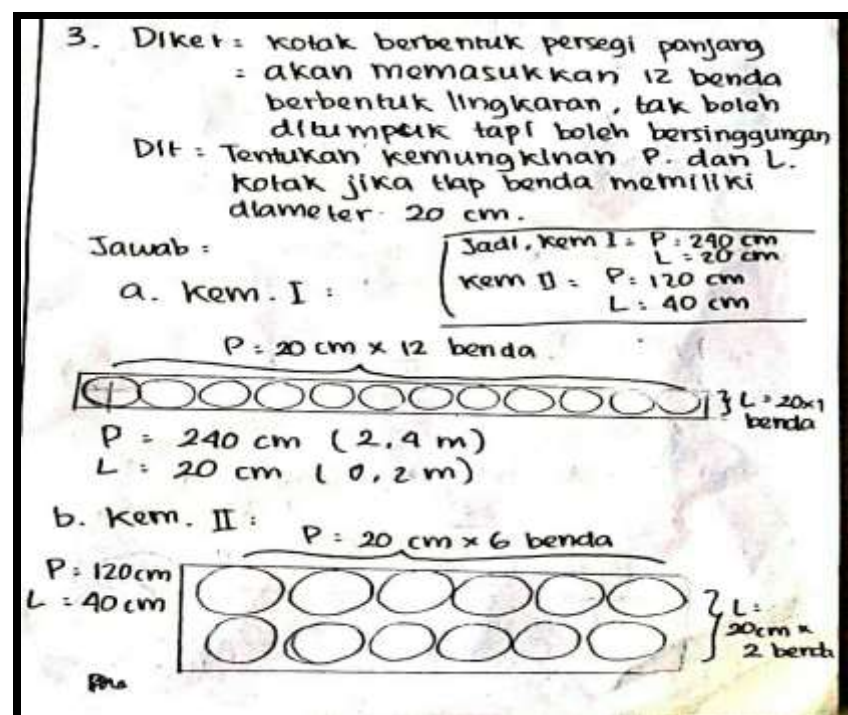 3. Diket : kotak berbentuk persegi panjang
: akan memasukkan 12 benda
berbentuk lingkaran, tak boleh
ditumpuk tapi boleh bersinggungan
Dit : Tentukan kemungkinan P. dan L.
kotak jika tiap benda memiliki
diameter 20 cm.
Jawab :
Jadi, kem I : P : 240 cm
L : 20 cm
kem II : P : 120 cm
L : 40 cm
a. Kem. I :
P : 20 cm x 12 benda
L : 20x1
benda
P : 240 cm (2,4 m)
L : 20 cm (0,2 m)
b. Kem. II :
P : 20 cm x 6 benda
P : 120 cm
L : 40 cm
L :
20cm x
2 benda